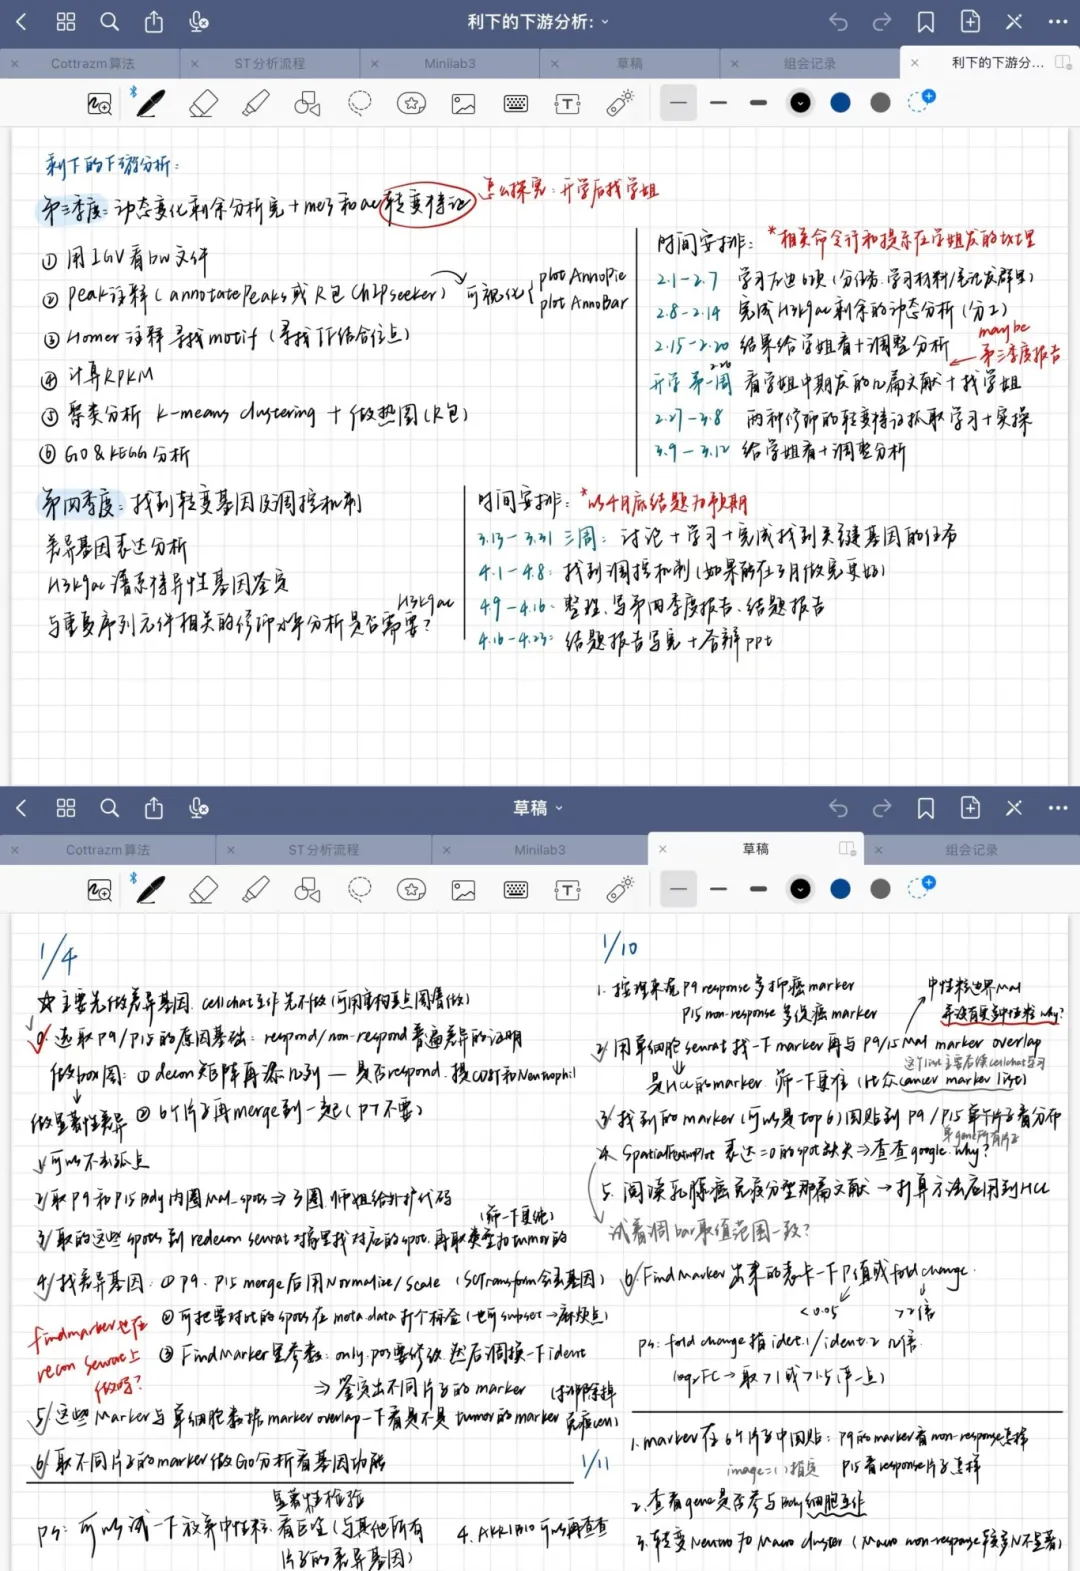 利下的下游分析:
Cottrazm算法
ST分析流程
Minilab3
草稿
组会记录
利下的下游分...
剩下的下游分析:
第三季度: 动态变化剩余分析完+me3和ac转变特征
怎么探究: 开学后找学姐
① 用IGV看bw文件
② Peak注释(annotatePeaks或R包ChIPseeker) 可视化{
plotAnnoPie
plotAnnoBar
③ Homer注释寻找motif (寻找TF结合位点)
④ 计算RPKM
⑤ 聚类分析 K-means clustering + 做热图(R包)
⑥ GO & KEGG分析
时间安排: *相关命令行和提示在学姐发的
2.1-2.7 学习 (分任务.学习材料
2.8-2.14 完成H3K9ac剩余的动态分析(分工)
2.15-2.20 结果给学姐看+调整分析
maybe
第三季度报告
2.26
开学第一周 看学姐中期发的几篇文献+找学姐
2.27-3.8 两种修饰的转变特征抓取学习+实操
3.9-3.12 给学姐看+调整分析
第四季度: 找到转变基因及调控机制
差异基因表达分析
H3K9ac谱系特异性基因鉴定
H3K9ac
与重复序列元件相关的修饰水平分析是否需要?
时间安排: *以4月底结题为预期
3.13-3.31 三周: 讨论+学习+完成找到关键基因的任务
4.1-4.8: 找到调控机制(如果能在3月做完更好)
4.9-4.16: 整理、写第四季度报告、结题报告
4.16-4.23: 结题报告写完+答辩ppt
草稿
Cottrazm算法
ST分析流程
Minilab3
草稿
组会记录
1/4
☆主要先做差异基因. cellchat互作先不做(可用
0. 选取P9/P15的原因基础: respond/non-respond普遍差异的证明
做box图: ① decon矩阵再添几列 — 是否respond. 提 和Neutrophil
做显著性差异 ② 6个片子再merge到一起(PT不要)
1/ 可以不去孤点
2/ 取P9和P15 Bdy内圈Mal_spots ⇒ 3圈 师姐给外扩代码
(筛一下更纯)
3/ 取的这些spots到redecon seurat对象里找对应的spot. 再取类型为tumor的
4/ 找差异基因: ① P9. P15 merge后用Normalize/Scale (SCTransform会丢基因)
② 可把要对比的spots在meta.data打个标签(也可subset→麻烦点)
findmarker也在
recon seurat上
做吗?
③ FindMarker里参数: only.pos要修改 然后调换一下ident
⇒ 鉴定出不同片子的marker
5/ 这些Marker与单细胞数据marker overlap一下看是不是tumor的marker
6/ 取不同片子的marker做GO分析看基因功能
显著性检验
ps: 可以试一下放弃中性粒. 看巨噬(与其他所有
片子的差异基因)
1/10
1. 按理来说P9 response多抑癌marker
P15 non-response多促癌marker
中性粒边界Mal
并没有更多中性粒 why?
2/ 用单细胞seurat找一下marker再与P9/15 Mal marker overlap
是HCC的marker. 筛一下更准 (比如cancer marker list)
3/ 找到的marker(可以是top6)回贴到P9/P15单个片子看分布
4. SpatialFeaturePlot 表达=0的spot缺失⇒查查google. why?
5. 阅读乳腺癌免疫分型那篇文献 →打算方法应用到HCC
试着调bar取值范围一致?
6/ FindMarker出来的表卡一下P值或fold change.
<0.05
>2倍
ps: fold change指ident.1/ident.2 几倍.
log2FC→取>1或>1.5(严一点)
1/11
1. marker在6个片子中回贴: P9的marker看non-response怎样
image=()指定 P15看response片子怎样
2. 查看gene是否参与Bdy细胞互作
3. 转变Neutro为Macro cluster (Macro non-response较多N不显著)
4. AKR1B10可以再查查